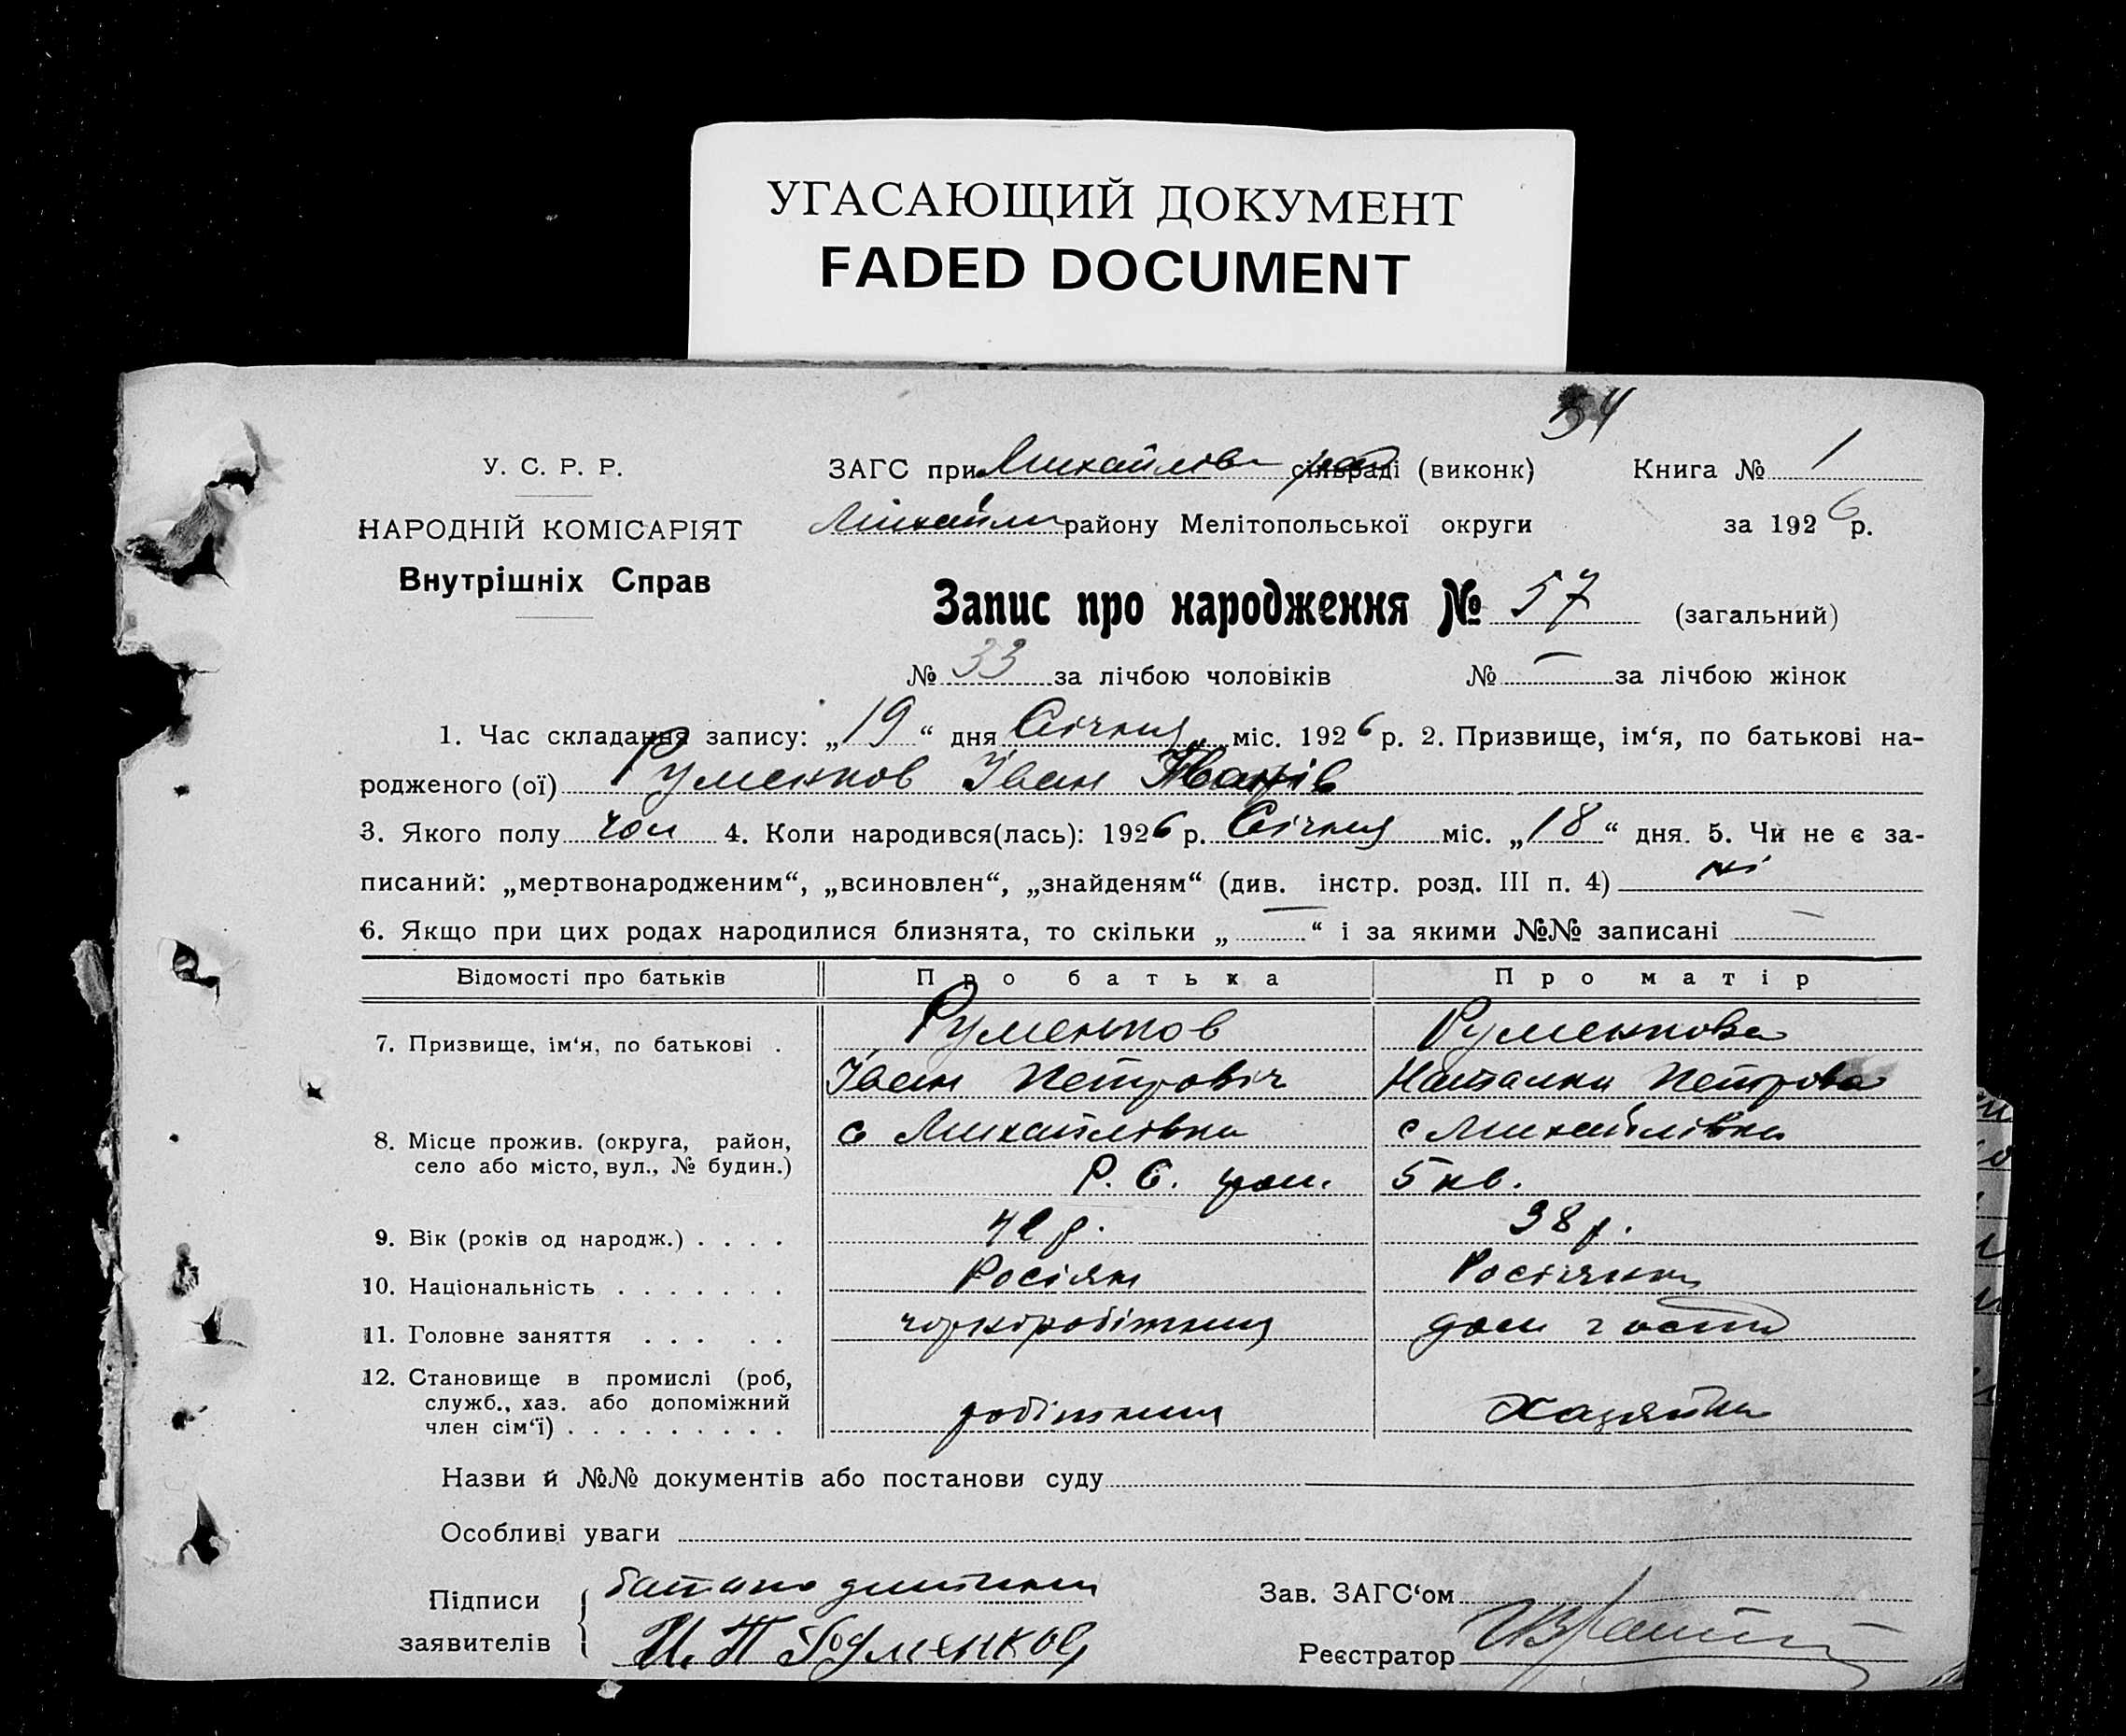 УГАСАЮЩИЙ ДОКУМЕНТ
FADED DOCUMENT
54
У. С. Р. Р.
НАРОДНІЙ КОМІСАРІЯТ
Внутрішніх Справ
ЗАГС при Михайлів сільраді (виконк) Книга № 1
Михайл району Мелітопольської округи за 1926 р.
Запис про народження № 57 (загальний)
№ 33 за лічбою чоловіків № — за лічбою жінок
1. Час складання запису: „19“ дня Січня міс. 1926 р. 2. Призвище, ім‘я, по батькові на-
родженого (ої) Руменков Іван Іванів
3. Якого полу чол 4. Коли народився(лась): 1926 р. Січня міс. „18“ дня. 5. Чи не є за-
писаний: „мертвонародженим“, „всиновлен“, „знайденям“ (див. інстр. розд. III п. 4) ні
6. Якщо при цих родах народилися близнята, то скільки „—“ і за якими №№ записані —
Відомості про батьків Про батька Про матір
7. Призвище, ім‘я, по батькові . Руменков Руменкова
Іван Петровіч Наталка Петрова
8. Місце прожив. (округа, район, с Михайлівка с Михайлівка
село або місто, вул., № будин.) Р. С. 5 кв.
9. Вік (років од народж.) . . . . р. 38 р.
10. Національність . . . . . . . Росіян Росіянка
11. Головне заняття . . . . . чорноробітник дом госп
12. Становище в промислі (роб,
служб., хаз. або допоміжний
член сім‘ї) . . . . . . . . . робітник Хазяйка
Назви й №№ документів або постанови суду
Особливі уваги
Підписи батько дитини Зав. ЗАГС‘ом
заявителів И. П Руменков Реєстратор